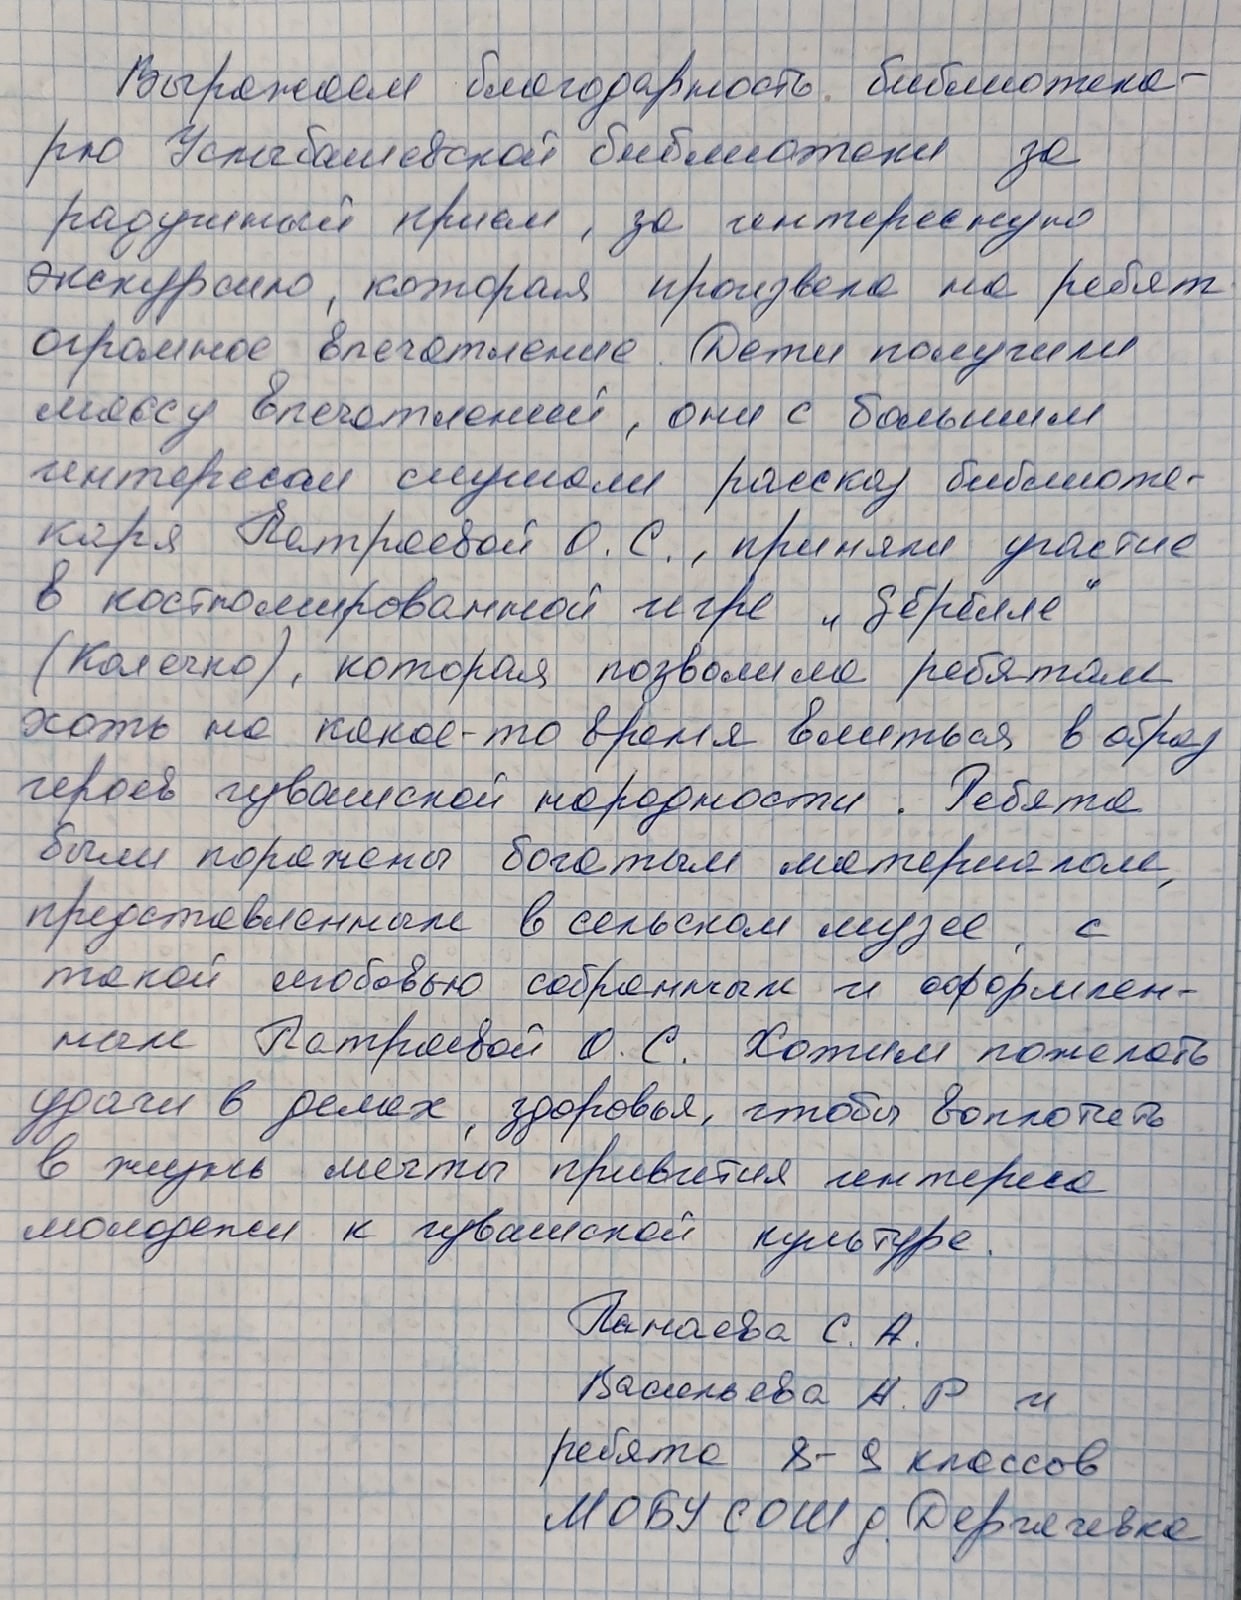 Выражаем благодарность библиотека-
рю Услыбашевской библиотеки за
радушный прием, за интересную
экскурсию, которая произвела на ребят
огромное впечатление. Дети получили
массу впечатлений, они с большим
интересом слушали рассказ библиоте-
каря Патраевой О.С., приняли участие
в костюмированной игре „
(Колечко), которая позволила ребятам
хоть на какое-то время влиться в образ
героев чувашской народности. Ребята
были поражены богатым материалом,
представленным в сельском музее, с
такой любовью собранным и оформлен-
ным Патраевой О.С. Хотим пожелать
удачи в делах, здоровья, чтобы воплотить
в жизнь мечты привития интереса
молодежи к чувашской культуре.
Панаева С. А.
Васильева А. Р и
ребята 8-9 классов
МОБУ СОШ д. Дергачевка